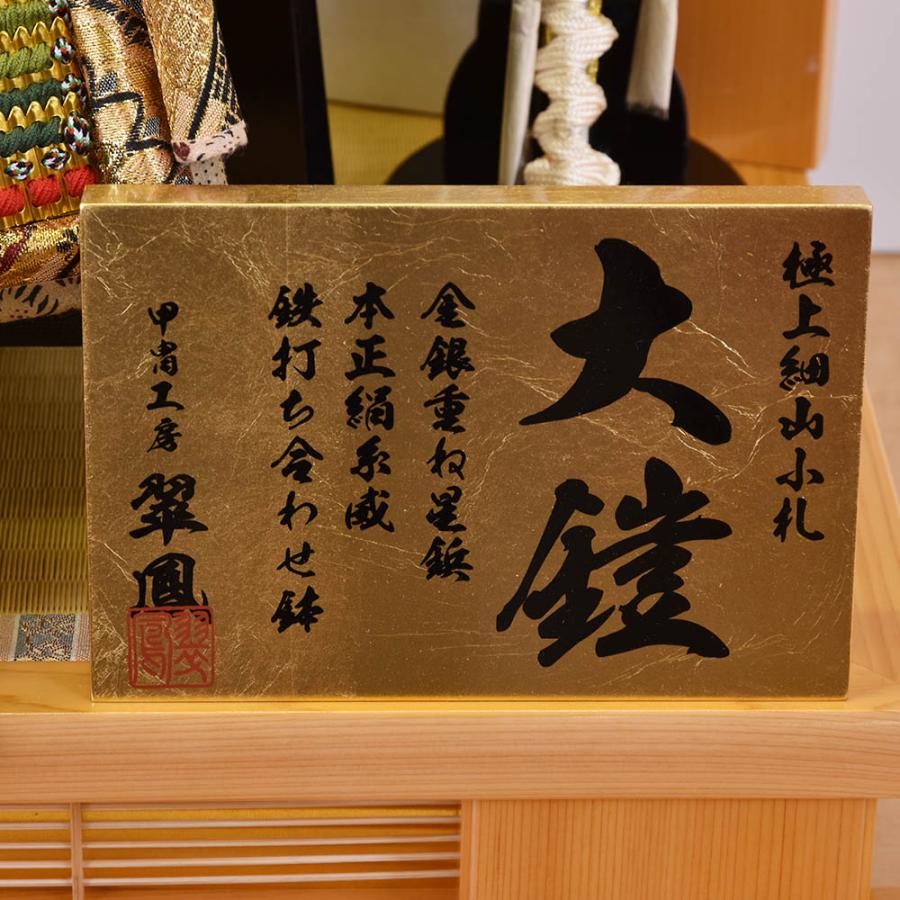 極上細山小札
大鎧
金銀重ね星鋲
本正絹糸威
鉄打ち合わせ鉢
甲冑工房 翠鳳